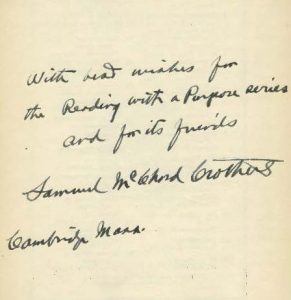 With best wishes for
the Reading with a Purpose series
and for its friends
Samuel McChord Crothers
Cambridge Mass.